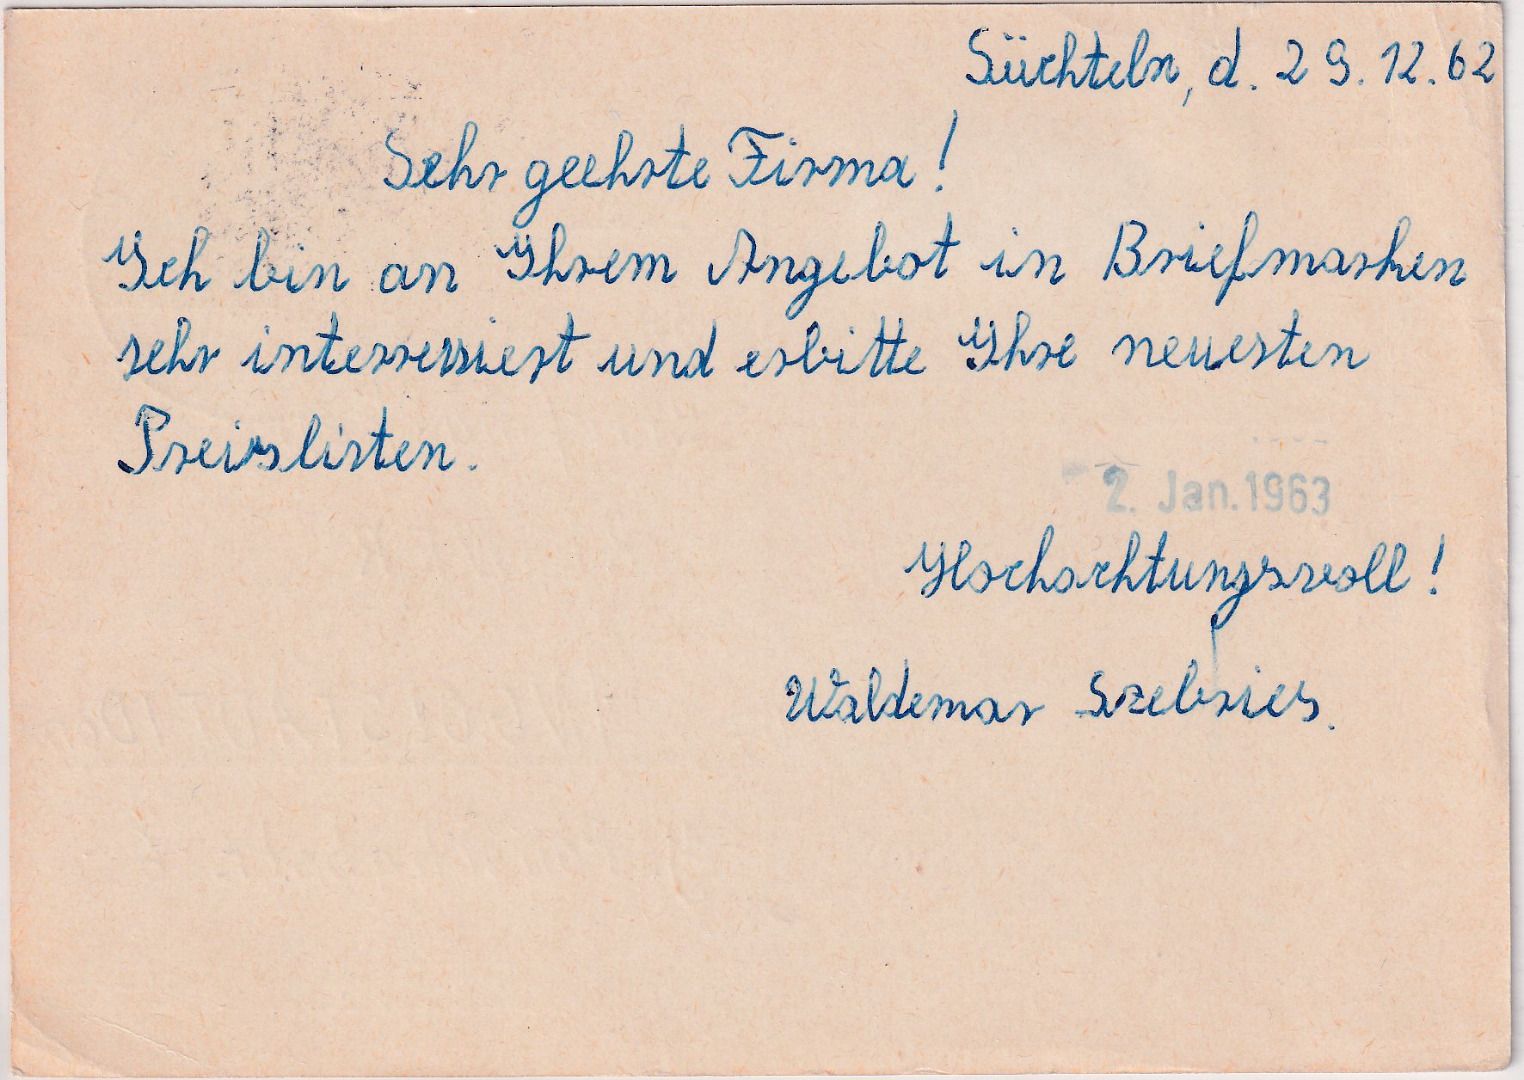 Süchteln, d. 29.12.62
Sehr geehrte Firma!
Ich bin an Ihrem Angebot in Briefmarken
sehr interressiert und erbitte Ihre neuesten
Preislisten.
2. Jan. 1963
Hochachtungsvoll!
Waldemar Szebries.